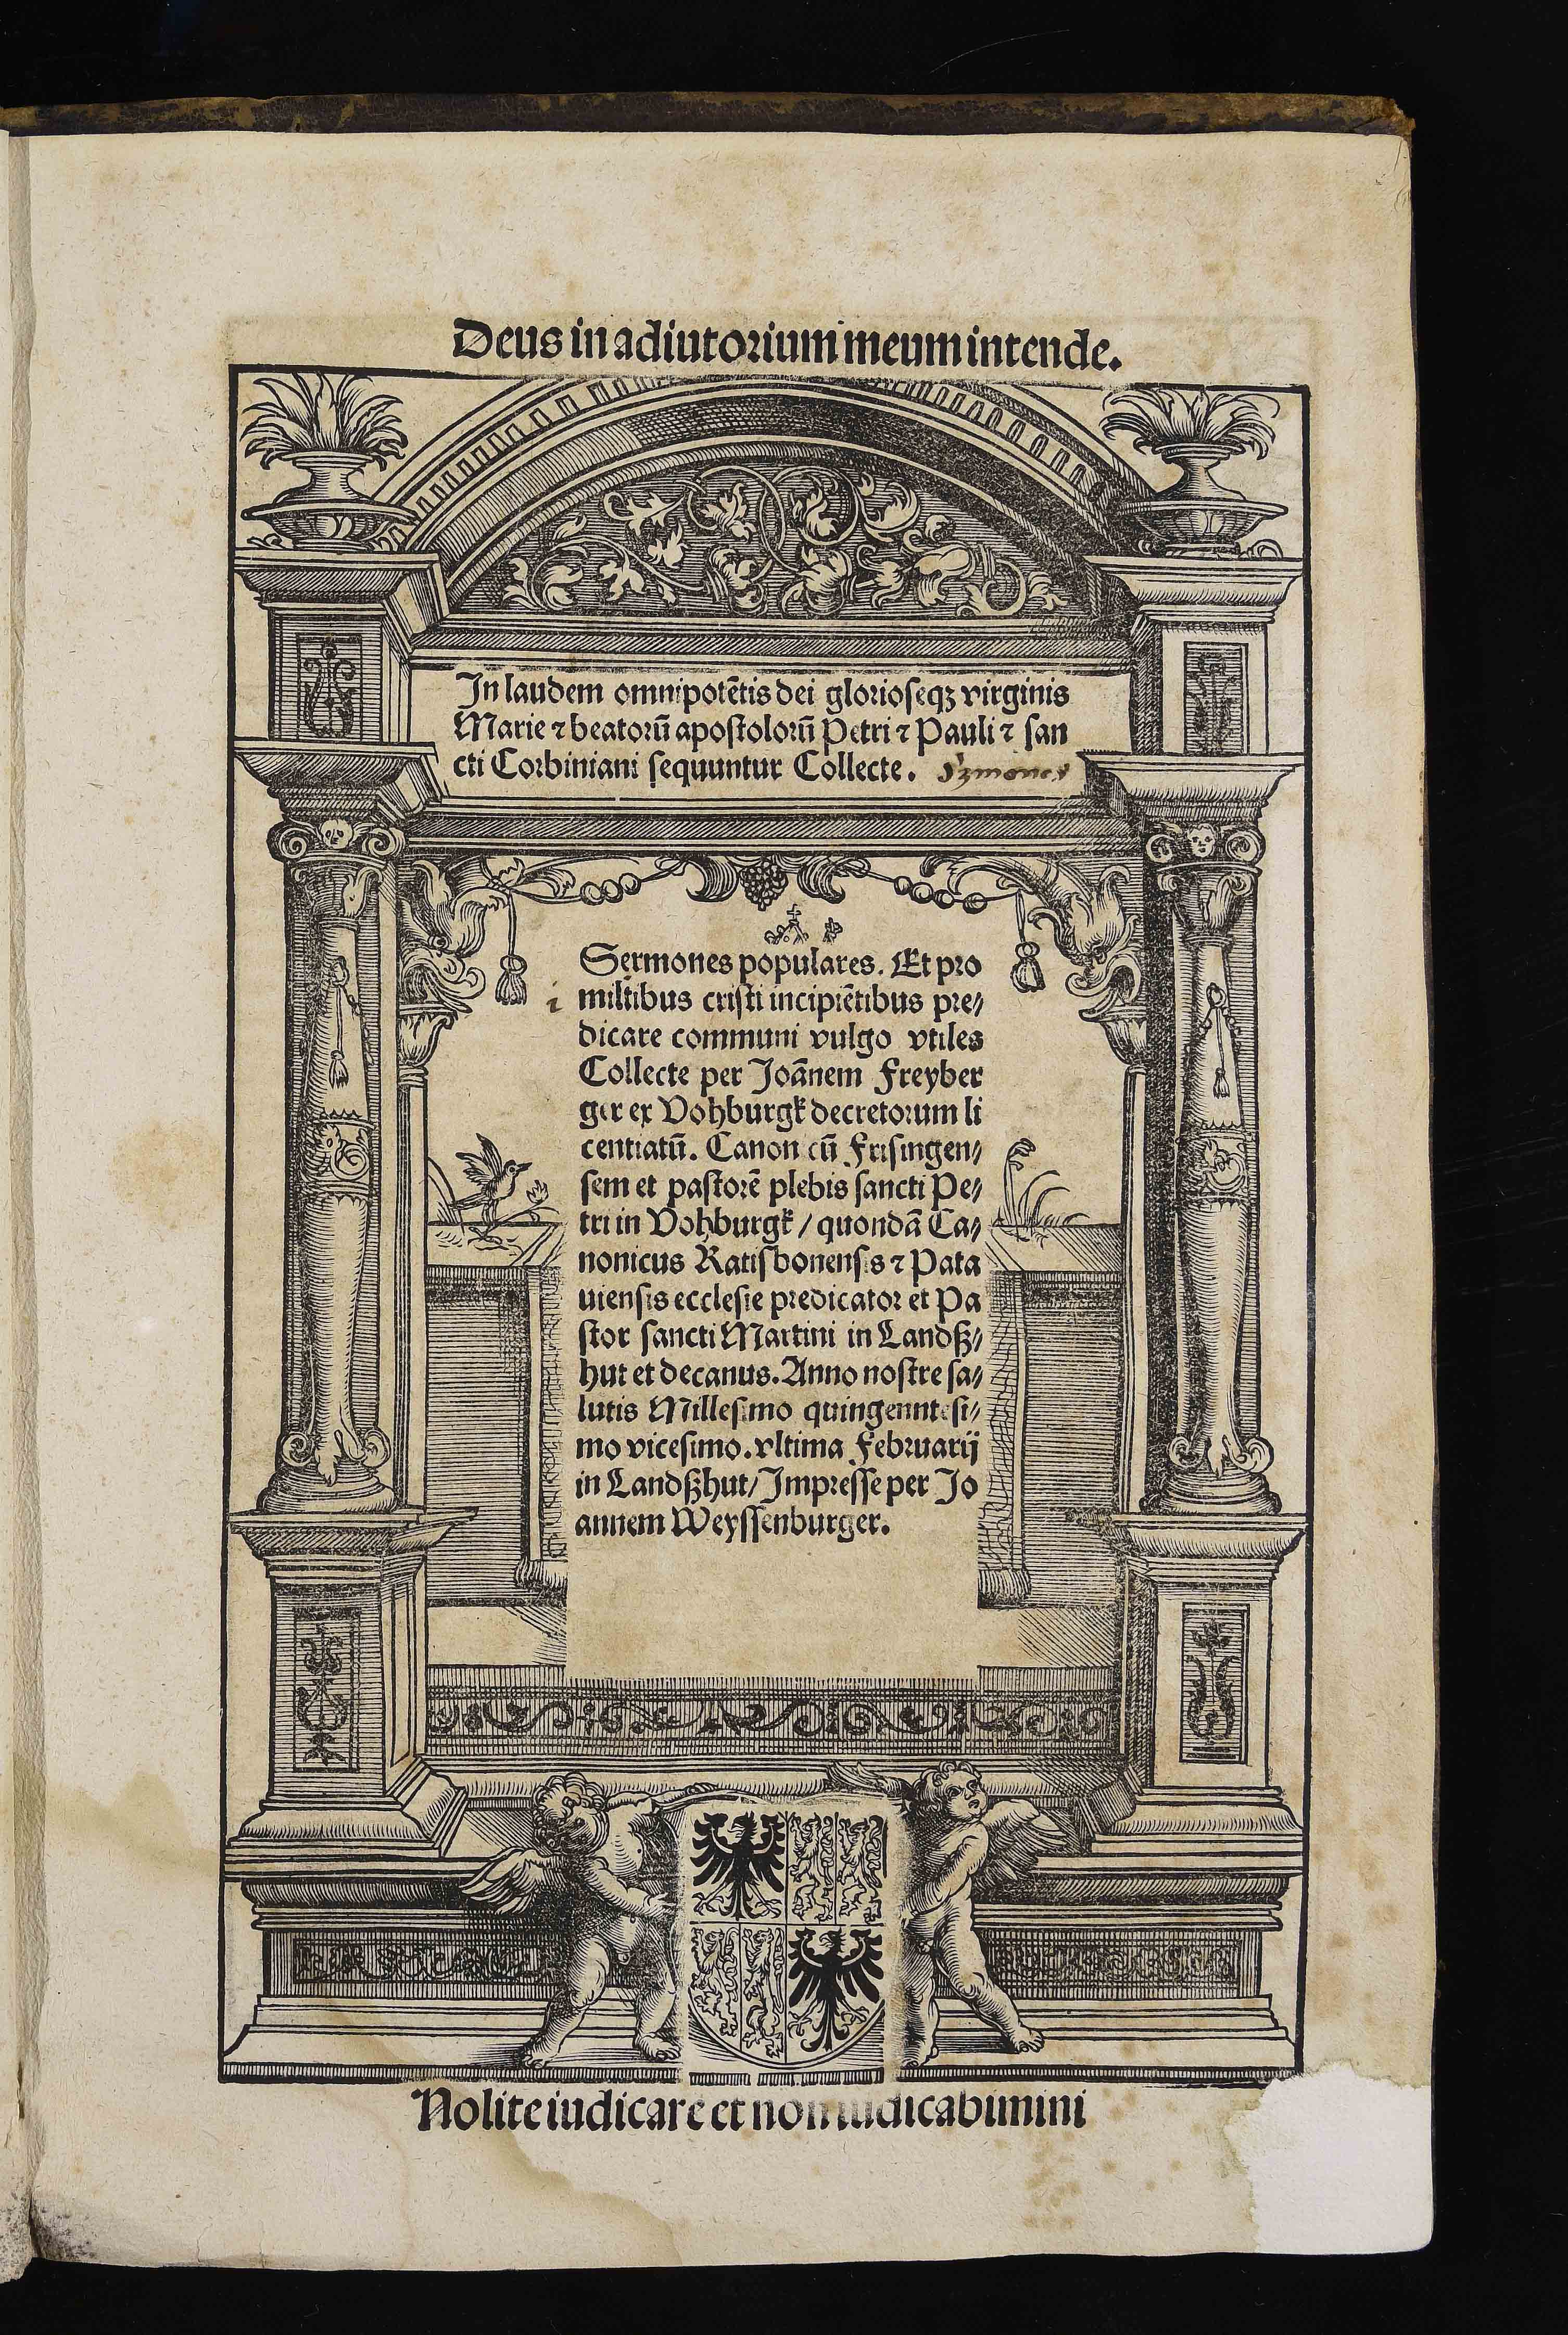 Deus in adiutorium meum intende.
In laudem omnipotētis dei glorioseqꝫ virginis
Marie ⁊ beatorū apostolorū Petri ⁊ Pauli ⁊ san
cti Corbiniani sequuntur Collecte. Sꝫmones
Sermones populares. Et pro
i miltibus cristi incipiētibus pre⸗
dicare communi vulgo vtiles
Collecte per Joānem Freyber
ger ex Vohburgk decretorum li
centiatū. Canon cū Frisingen⸗
sem et pastorē plebis sancti Pe⸗
tri in Vohburgk / quondā Ca⸗
nonicus Ratisbonensis ⁊ Pata
uiensis ecclesie predicator et Pa
stor sancti Martini in Landß⸗
hut et decanus. Anno nostre sa⸗
lutis Millesimo quingenntesi⸗
mo vicesimo. vltima Februarij
in Landßhut / Impresse per Jo
annem Weyssenburger.
Nolite iudicare et non iudicabimini